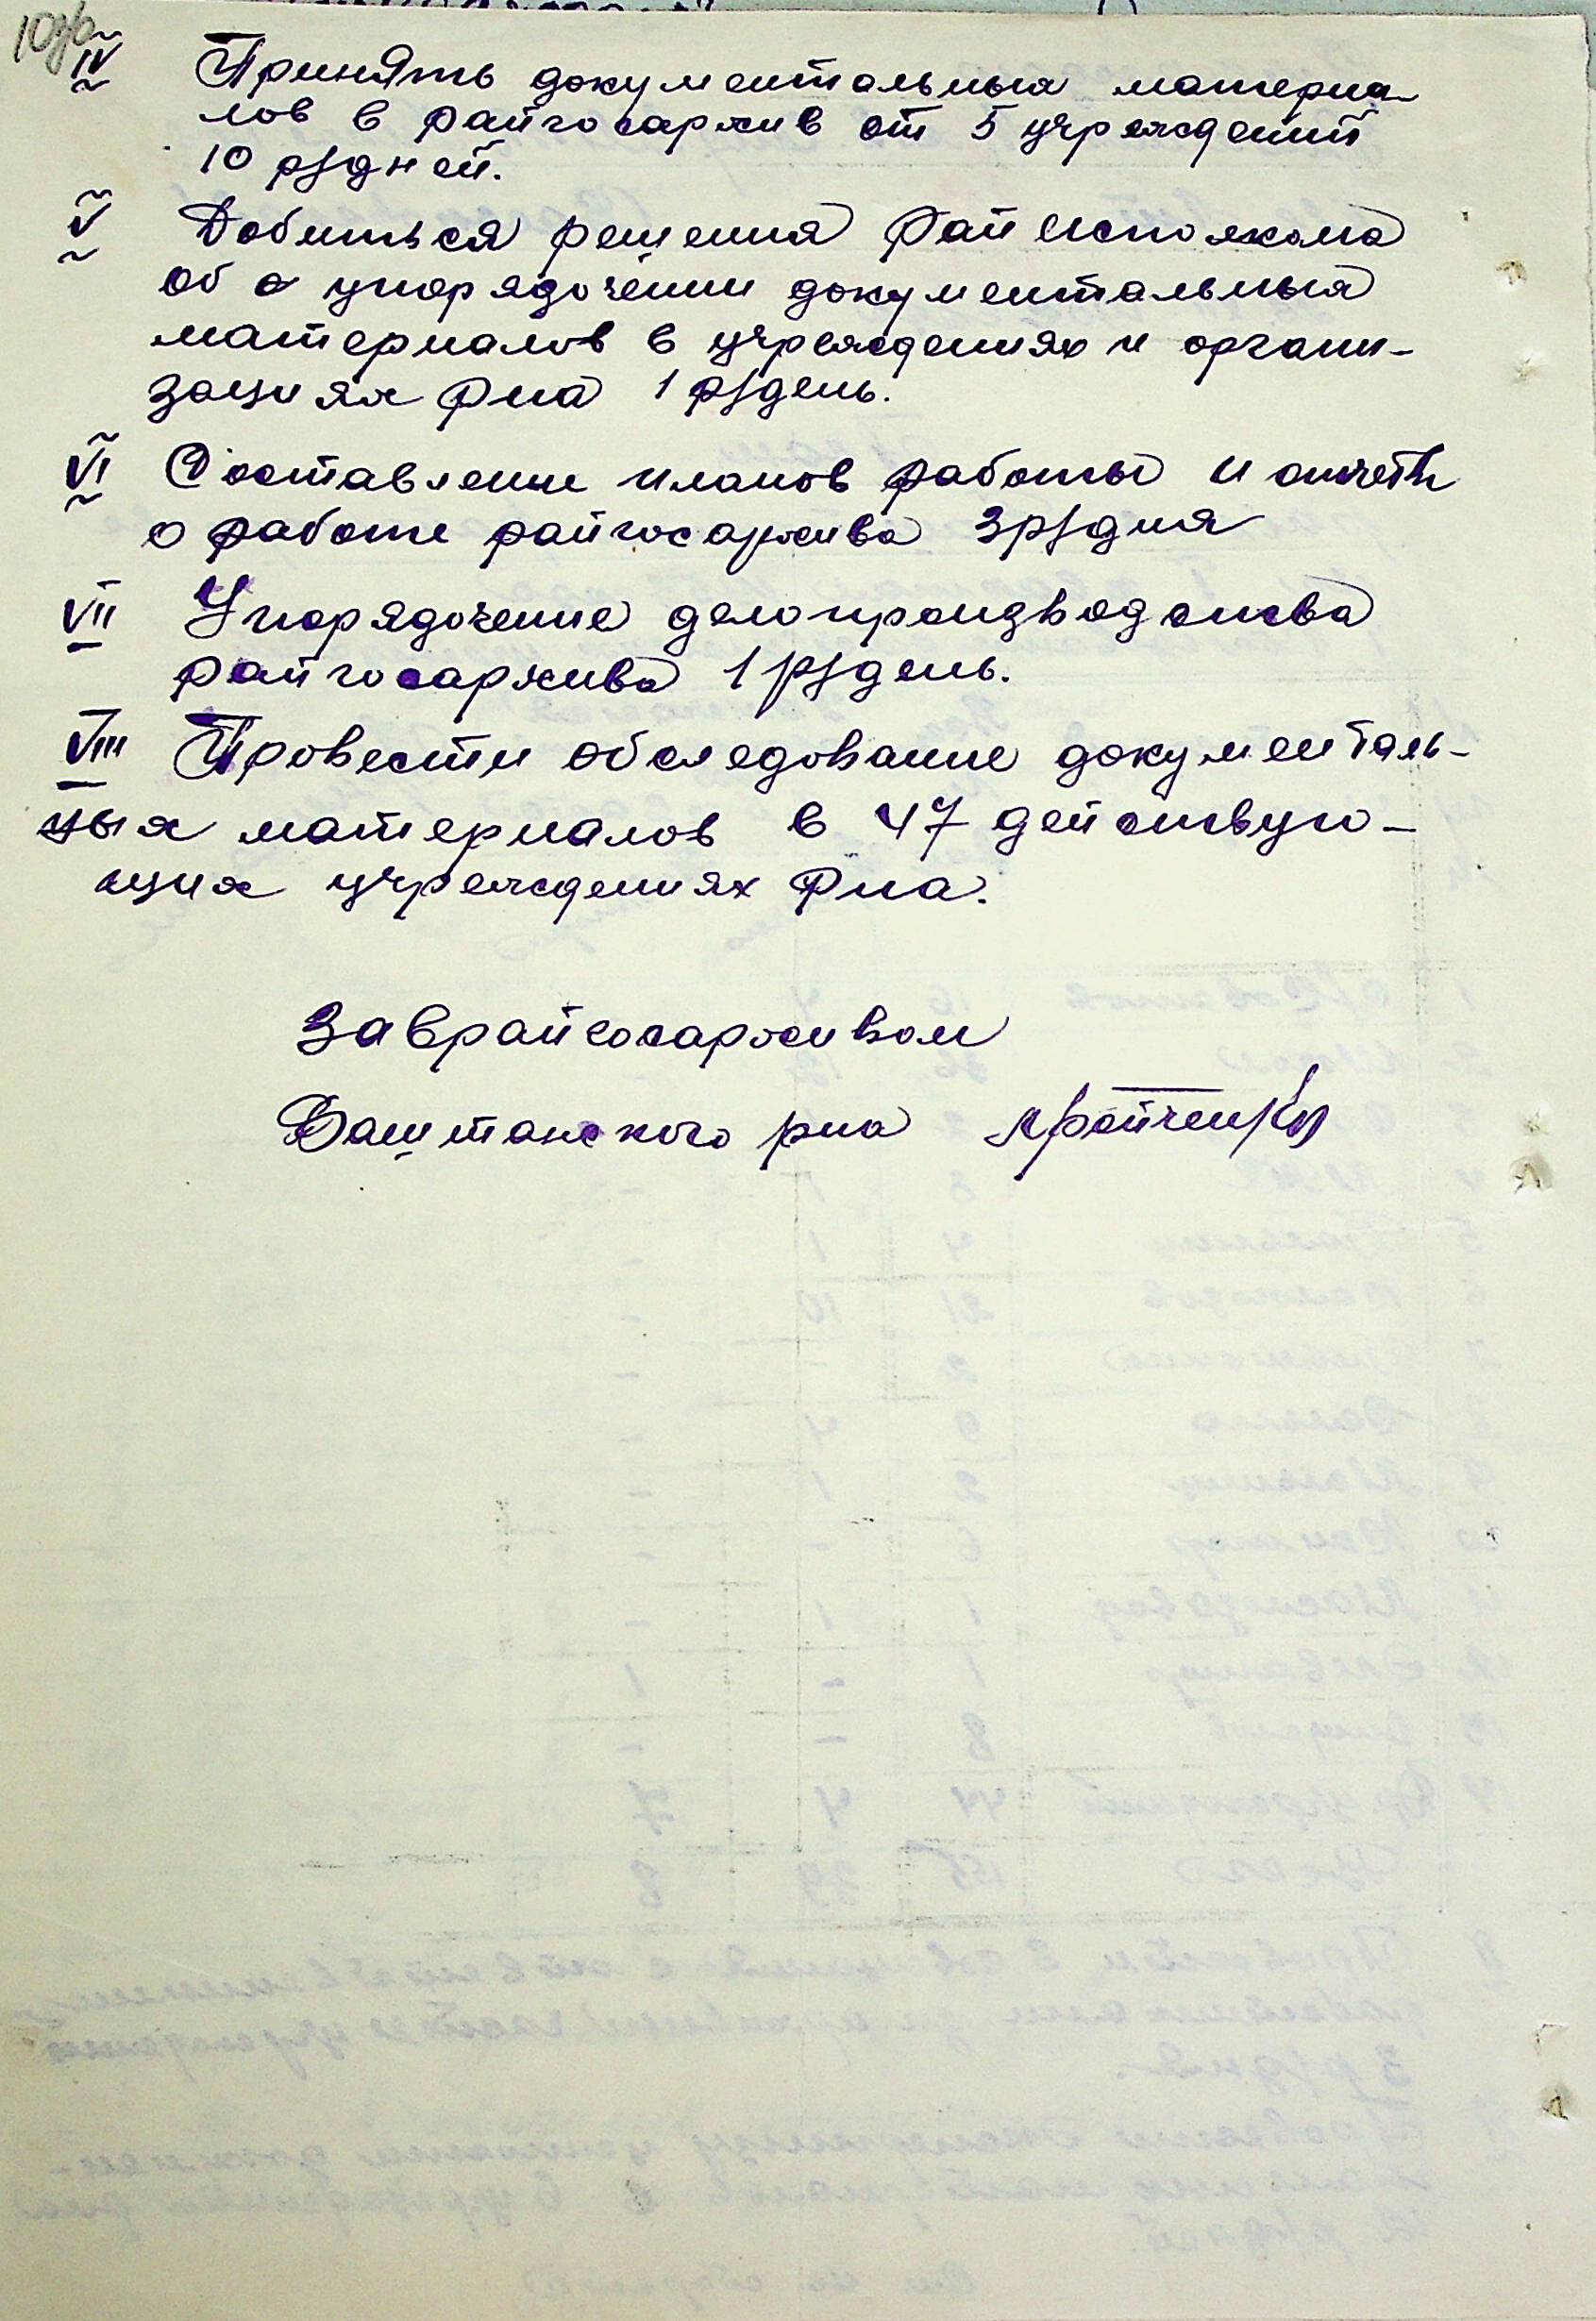 10об
IV Принять документальных материа
лов в райгосархив от 5 учреждений
10 р/дней.
V Добиться решения Райисполкома
об о упорядочении документальных
материалов в учреждениях и органи-
зациях р-на 1 р/день.
VI Составление планов работы и отчетов
о работе райгосархива 3 р/дня
VII Упорядочение делопроизводства
райгосархива 1 р/день.
VIII Провести обследование документаль-
ных материалов в 47 действую-
щих учреждениях р-на.
Заврайгосархивом
Баштанского р-на